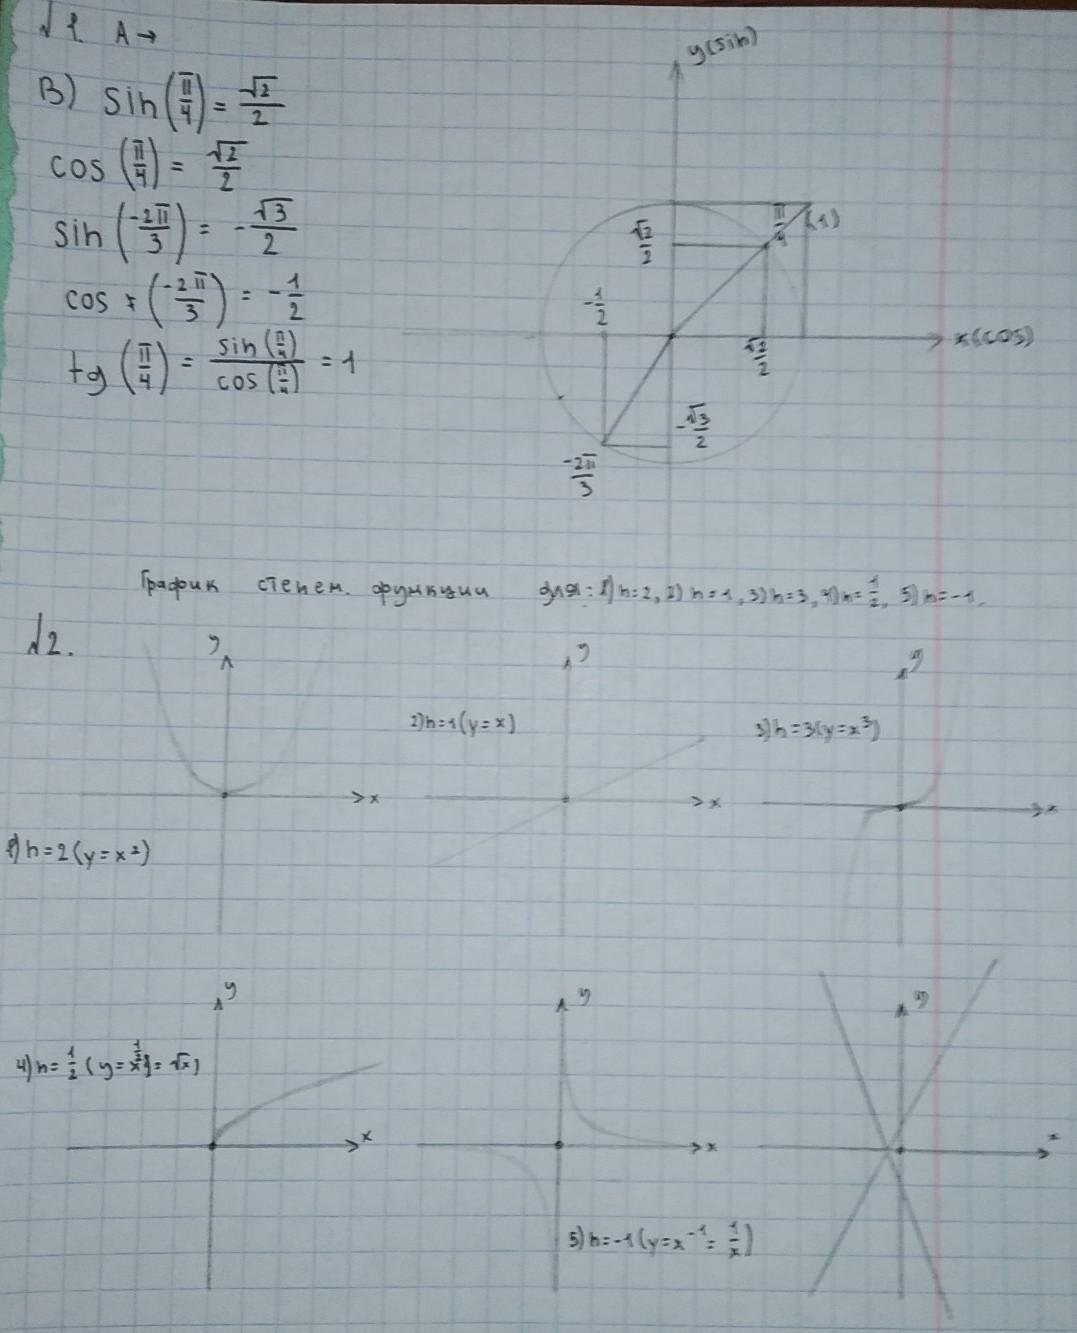 √1 A→
B) sin(π/4) = √2/2
cos(π/4) = √2/2
sin(-2π/3) = -√3/2
cos (-2π/3) = -1/2
tg(π/4) = sin(π/4)/cos(π/4) = 1
y(sin)
π/4 (1)
√2/2
-1/2
x(cos)
√2/2
-√3/2
-2π/3
График степен. функции для: 1) n=2, 2) n=1, 3) n=3, 4) n=1/2, 5) n=-1.
√2.
y
y
y
2) n=1 (y=x)
3) n=3 (y=x³)
x
x
x
1) n=2 (y=x²)
y
y
y
4) n=1/2 (y=x^1/2 = √x)
x
x
x
5) n=-1 (y=x⁻¹ = 1/x)